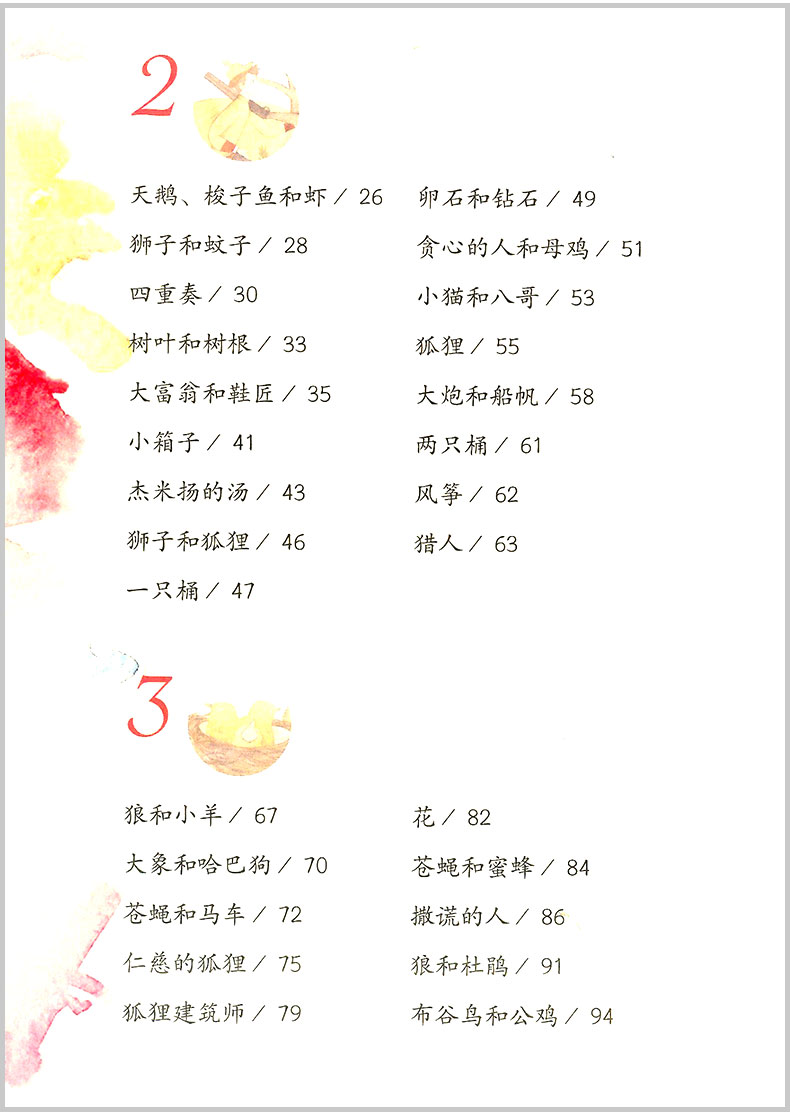 2
天鹅、梭子鱼和虾 / 26
狮子和蚊子 / 28
四重奏 / 30
树叶和树根 / 33
大富翁和鞋匠 / 35
小箱子 / 41
杰米扬的汤 / 43
狮子和狐狸 / 46
一只桶 / 47
卵石和钻石 / 49
贪心的人和母鸡 / 51
小猫和八哥 / 53
狐狸 / 55
大炮和船帆 / 58
两只桶 / 61
风筝 / 62
猎人 / 63
3
狼和小羊 / 67
大象和哈巴狗 / 70
苍蝇和马车 / 72
仁慈的狐狸 / 75
狐狸建筑师 / 79
花 / 82
苍蝇和蜜蜂 / 84
撒谎的人 / 86
狼和杜鹃 / 91
布谷鸟和公鸡 / 94